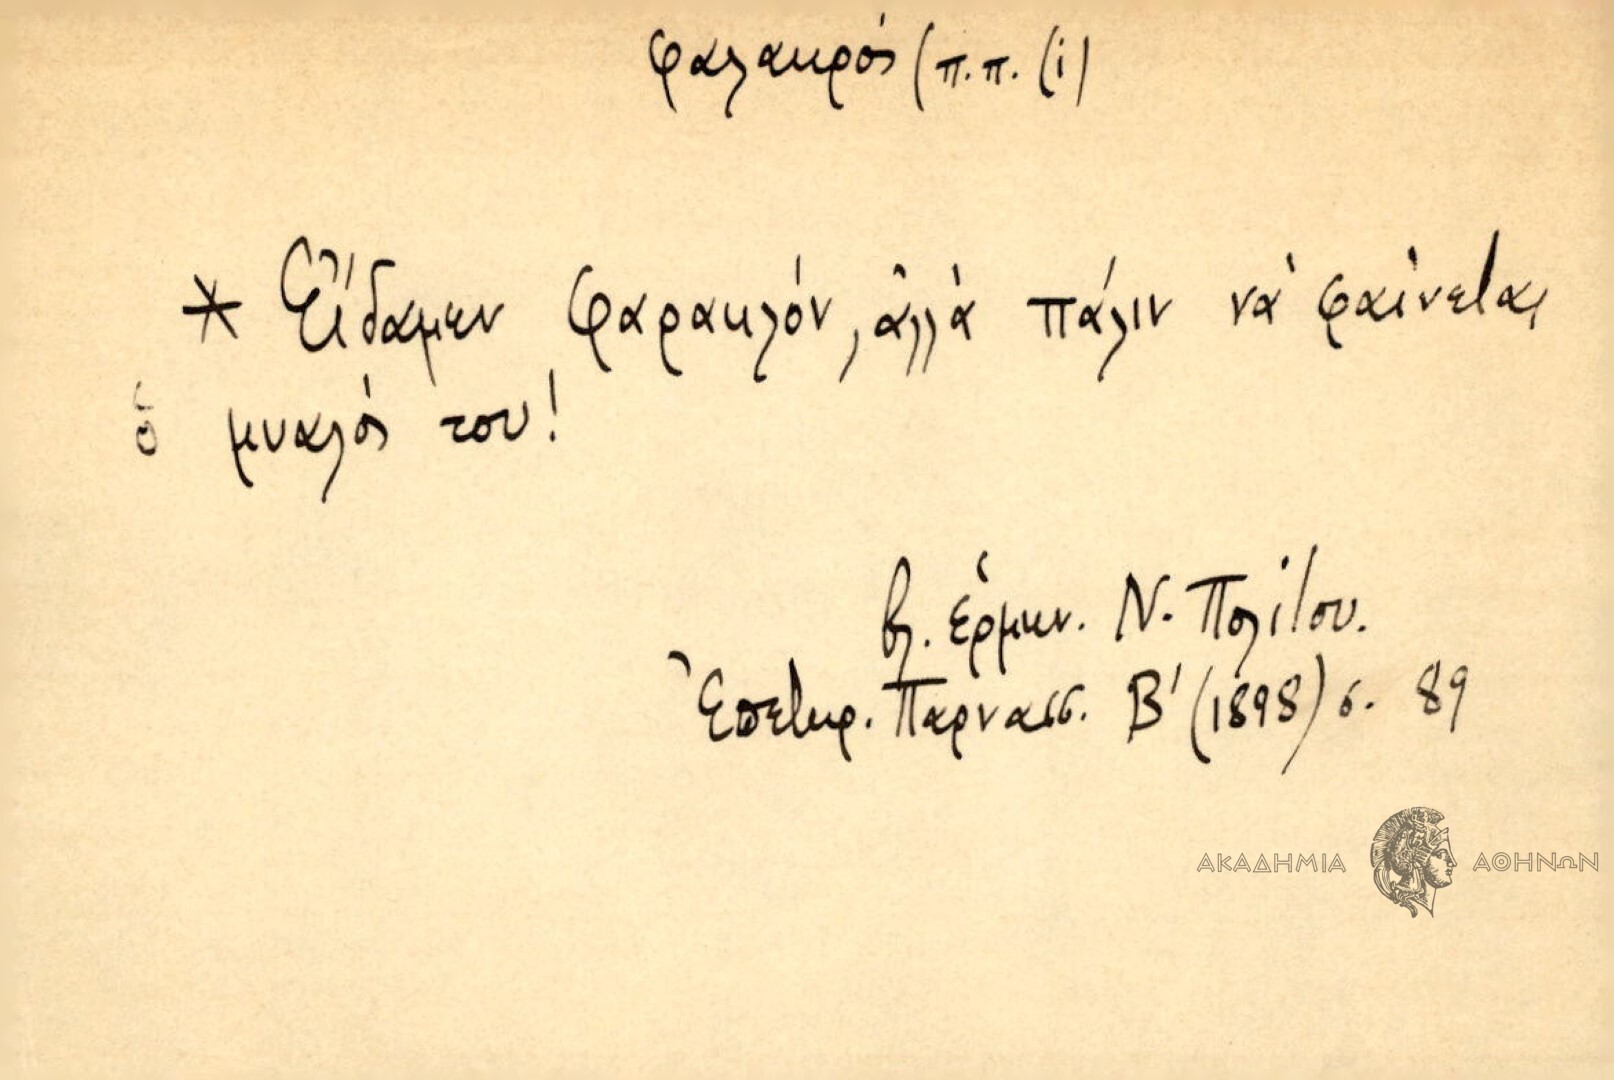 φαλακρός (π.π. (i)
* Εἴδαμεν φαρακλόν, ἀλλὰ πάλιν νὰ φαίνεται
ὁ μυαλός του!
βλ. ἑρμην. Ν. Πολίτου.
Ἐπετηρ. Παρνασσ. Β' (1898) σ. 89
ΑΚΑΔΗΜΙΑ ΑΘΗΝΩΝ